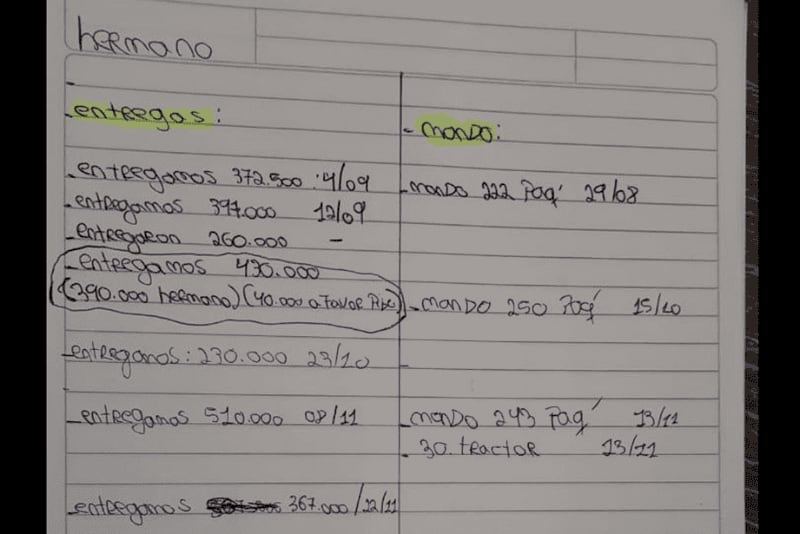 hermano
entregas:
- mando:
- entregamos 372.500 : 4/09
- mando 222 Paq' 29/08
- entregamos 397.000 12/09
- entregaron 260.000 -
- entregamos 430.000
(390.000 hermano) (40.000 a favor
- mando 250 Paq' 15/10
- entregamos: 230.000 23/10
-
- entregamos 510.000 08/11
- mando 243 Paq' 13/11
- 30. tractor 13/11
- entregamos 367.000 / 22/11